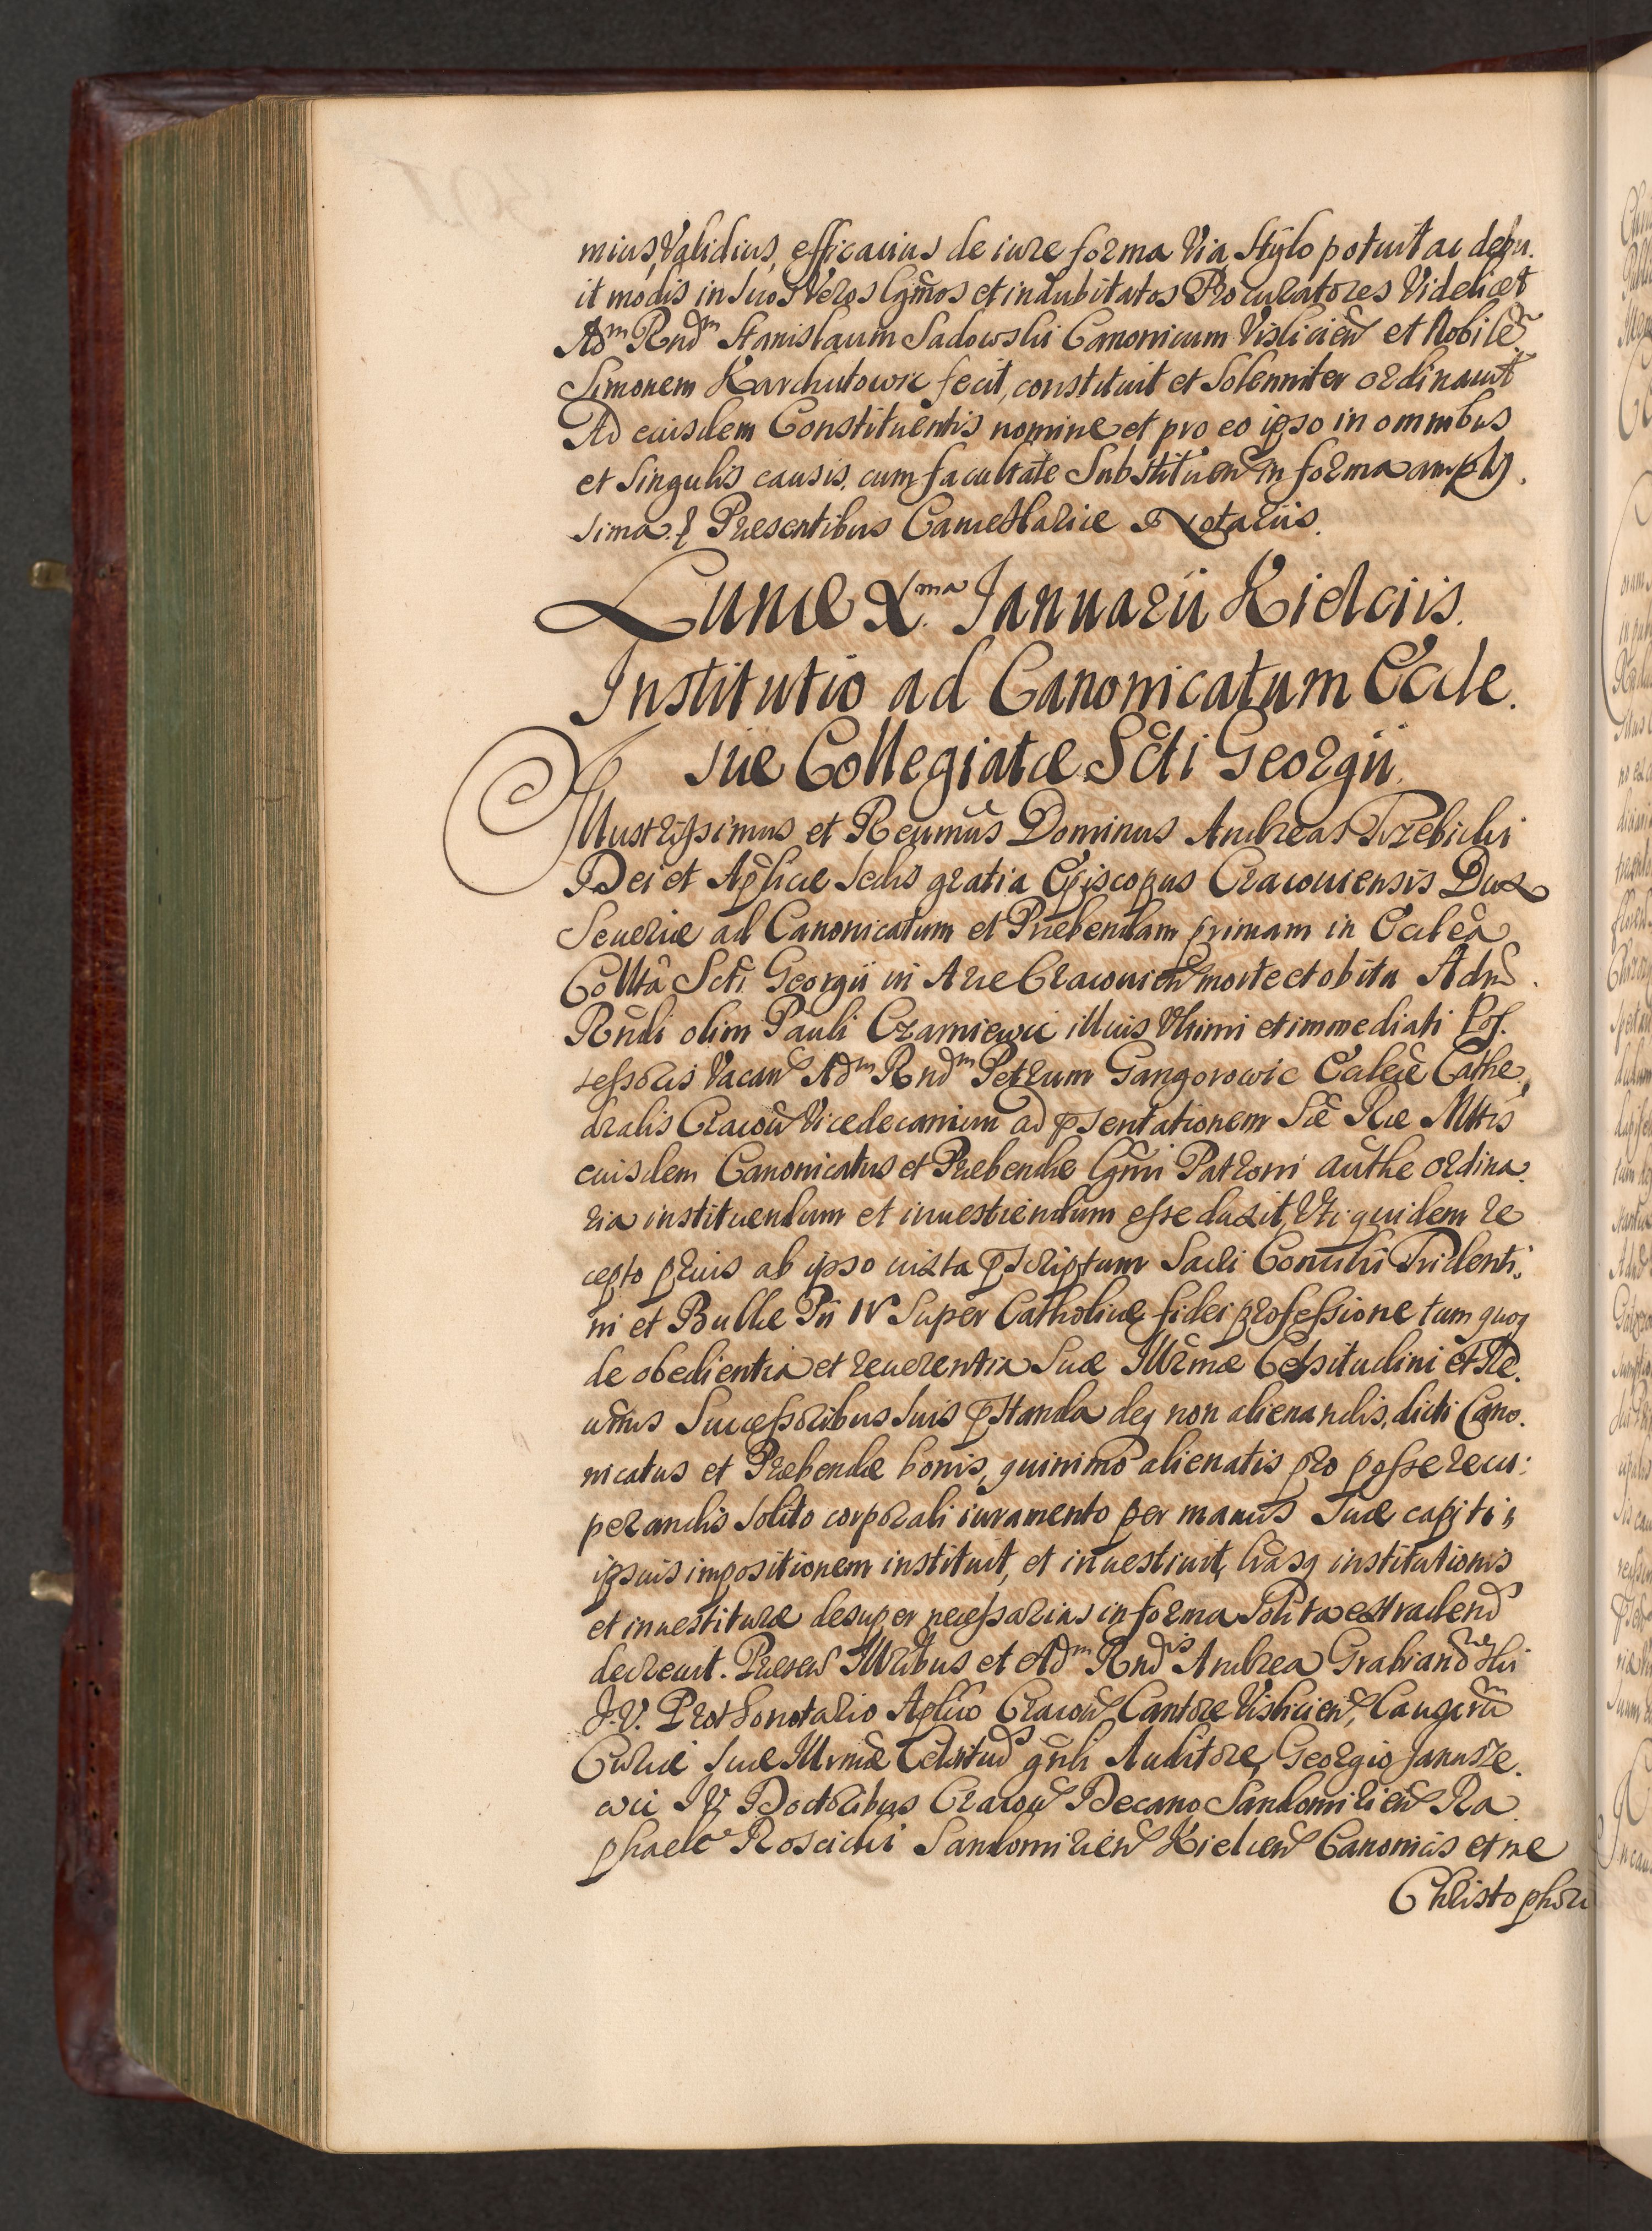 mius, Validius, efficacius de iure forma Via Stylo potuit ac debu.
it modis in suos Veros lgmos et indubitatos Procuratores Videlicet
Adm Rndm Stanislaum Sadowski Canonicum Visliciens et Nobile
Simonem Karchutowic fecit, constituit et Solenniter ordinauit
Ad eiusdem Constituentis nomine et pro eo ipso in omnibus
et singulis causis, cum facultate Substituen in forma amplis.
sima. Presentibus Cancellariæ Notariis.
Lunæ X.ma Ianuarii Kielciis.
Institutio ad Canonicatum Eccle.
siæ Collegiatæ Scti Georgii.
Illustrissimus et Reumus Dominus Andreas Trzebicki
Dei et Aplicæ Sedis gratia Episcopus Cracouiensis Dux
Seueriæ ad Canonicatum et Præbendam primam in Eccleã
Colltâ Scti Georgii in Arce Cracouien morte et obitu Adm
Rndi olim Pauli Czarniewic illius Vltimi et immediati Pos.
sessoris Vacan Adm Rndm Petrum Gangorowic Eccleæ Cathe,
dralis Cracou Vicedecanum ad psentationem Sæ Ræ Mttis
eiusdem Canonicatus et Præbendæ lgmi Patroni authe ordina.
ria instituendum et inuestiendum esse duxit, Vti quidem re
cepto prius ab ipso iuxta pscriptum Sacri Concilii Tridenti.
ni et Bullæ Pii IV Super Catholicæ fidei professione tum quoq
de obedientia et reuerentia Suæ Illrmæ Celsitudini et Re.
umis Successoribus suis pstanda deq non alienandis, dicti Cano.
nicatus et Præbendæ bonis, quinimo alienatis pro posse recu:
perandis solito corporali iuramento per manus Suæ capiti
ipsius impositionem instituit, et inuestiuit, lrasq institutionis
et inuestituræ desuper necessarias in forma Solita extradend
decreuit. Presen Illribus et Adm Rndis Andrea Grabianowski
I.V. Prothonotario Aplico Cracou Cantore Visliciens, Causarum
Curiæ Suæ Illrmæ Celsitud gnli Auditore, Georgio Janusze.
wic I V Doctoribus Cracou Decano Sandomirien Ra
phaele Roscicki Sandomirien Kielcen Canonicis et me
Christophoro